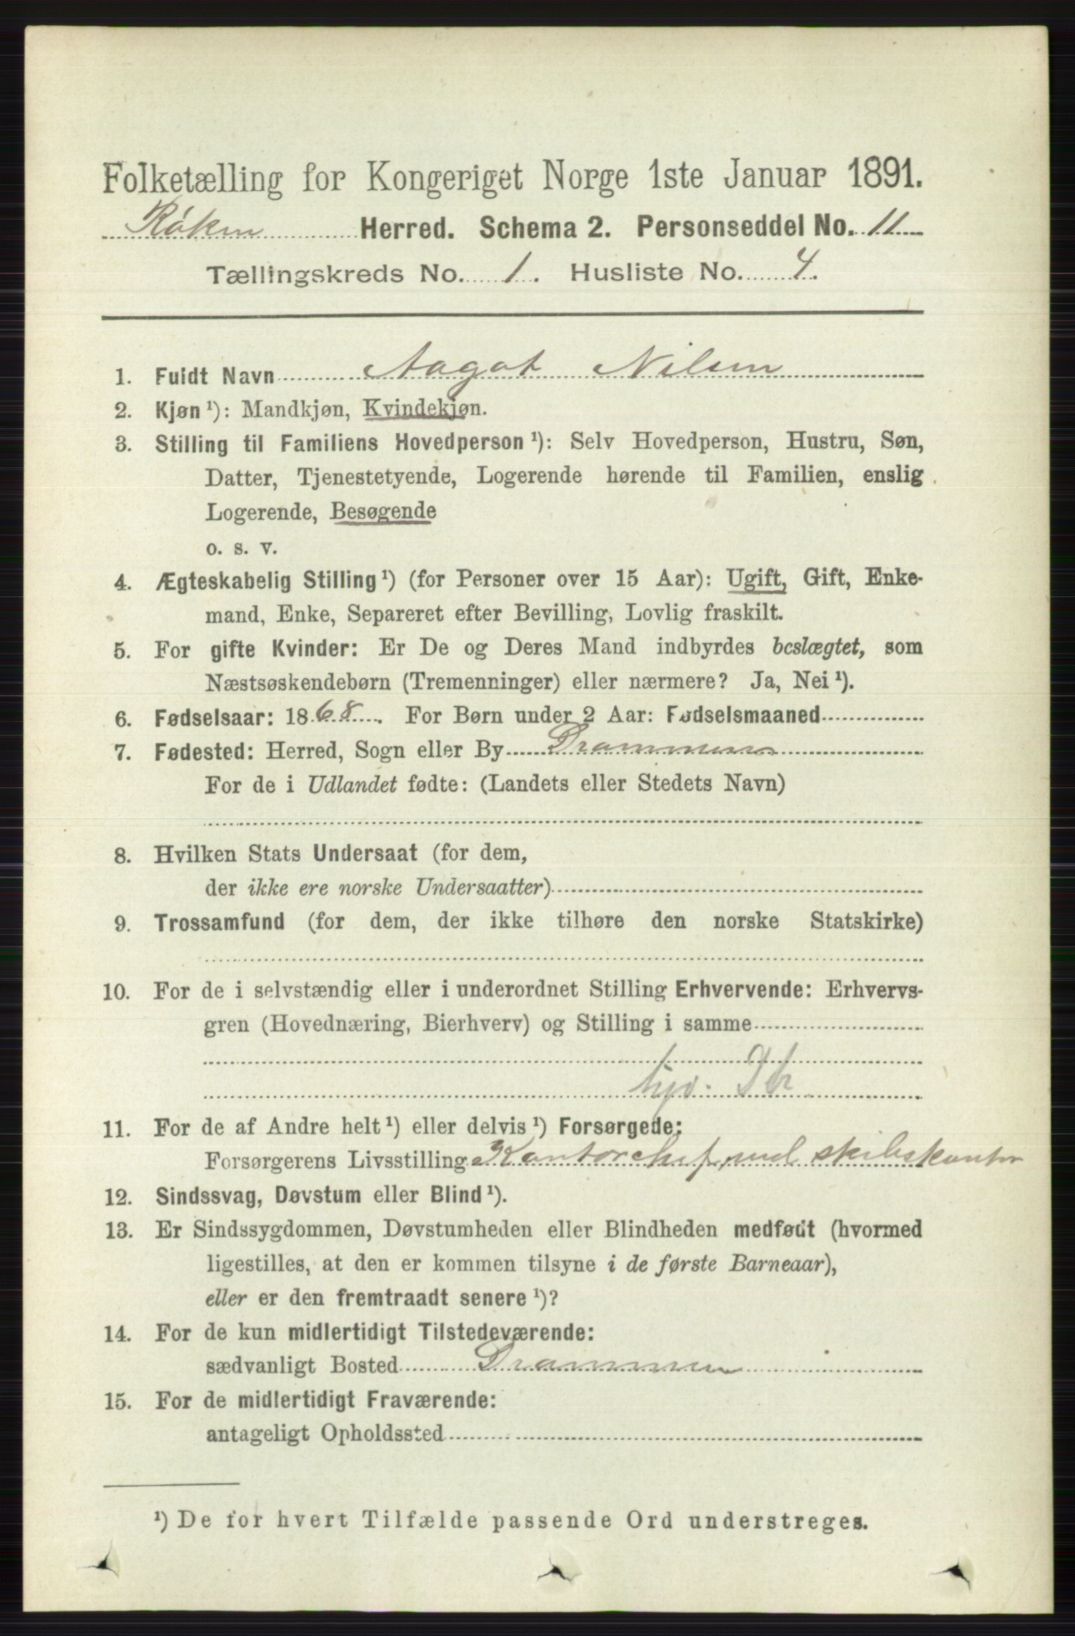 Folketælling for Kongeriget Norge 1ste Januar 1891.
Røken Herred. Schema 2. Personseddel No. 11
Tællingskreds No. 1. Husliste No. 4.
1. Fuldt Navn Aagot Nilsen
2. Kjøn ¹): Mandkjøn, Kvindekjøn.
3. Stilling til Familiens Hovedperson ¹): Selv Hovedperson, Hustru, Søn,
Datter, Tjenestetyende, Logerende hørende til Familien, enslig
Logerende, Besøgende
o. s. v.
4. Ægteskabelig Stilling ¹) (for Personer over 15 Aar): Ugift, Gift, Enke-
mand, Enke, Separeret efter Bevilling, Lovlig fraskilt.
5. For gifte Kvinder: Er De og Deres Mand indbyrdes beslægtet, som
Næstsøskendebørn (Tremenninger) eller nærmere? Ja, Nei ¹).
6. Fødselsaar: 1868. For Børn under 2 Aar: Fødselsmaaned
7. Fødested: Herred, Sogn eller By Drammen
For de i Udlandet fødte: (Landets eller Stedets Navn)
8. Hvilken Stats Undersaat (for dem,
der ikke ere norske Undersaatter)
9. Trossamfund (for dem, der ikke tilhøre den norske Statskirke)
10. For de i selvstændig eller i underordnet Stilling Erhvervende: Erhvervs-
gren (Hovednæring, Bierhverv) og Stilling i samme
11. For de af Andre helt ¹) eller delvis ¹) Forsørgede:
Forsørgerens Livsstilling Kontorchef ved skibskontor
12. Sindssvag, Døvstum eller Blind ¹).
13. Er Sindssygdommen, Døvstumheden eller Blindheden medfødt (hvormed
ligestilles, at den er kommen tilsyne i de første Barneaar),
eller er den fremtraadt senere ¹)?
14. For de kun midlertidigt Tilstedeværende:
sædvanligt Bosted Drammen
15. For de midlertidigt Fraværende:
antageligt Opholdssted
¹) De for hvert Tilfælde passende Ord understreges.